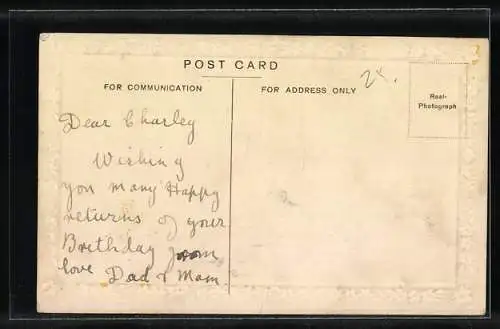 POST CARD
FOR COMMUNICATION
FOR ADDRESS ONLY
Real-
Photograph
Dear Charley
Wishing
you many Happy
returns of your
Birthday from
love Dad & Mam